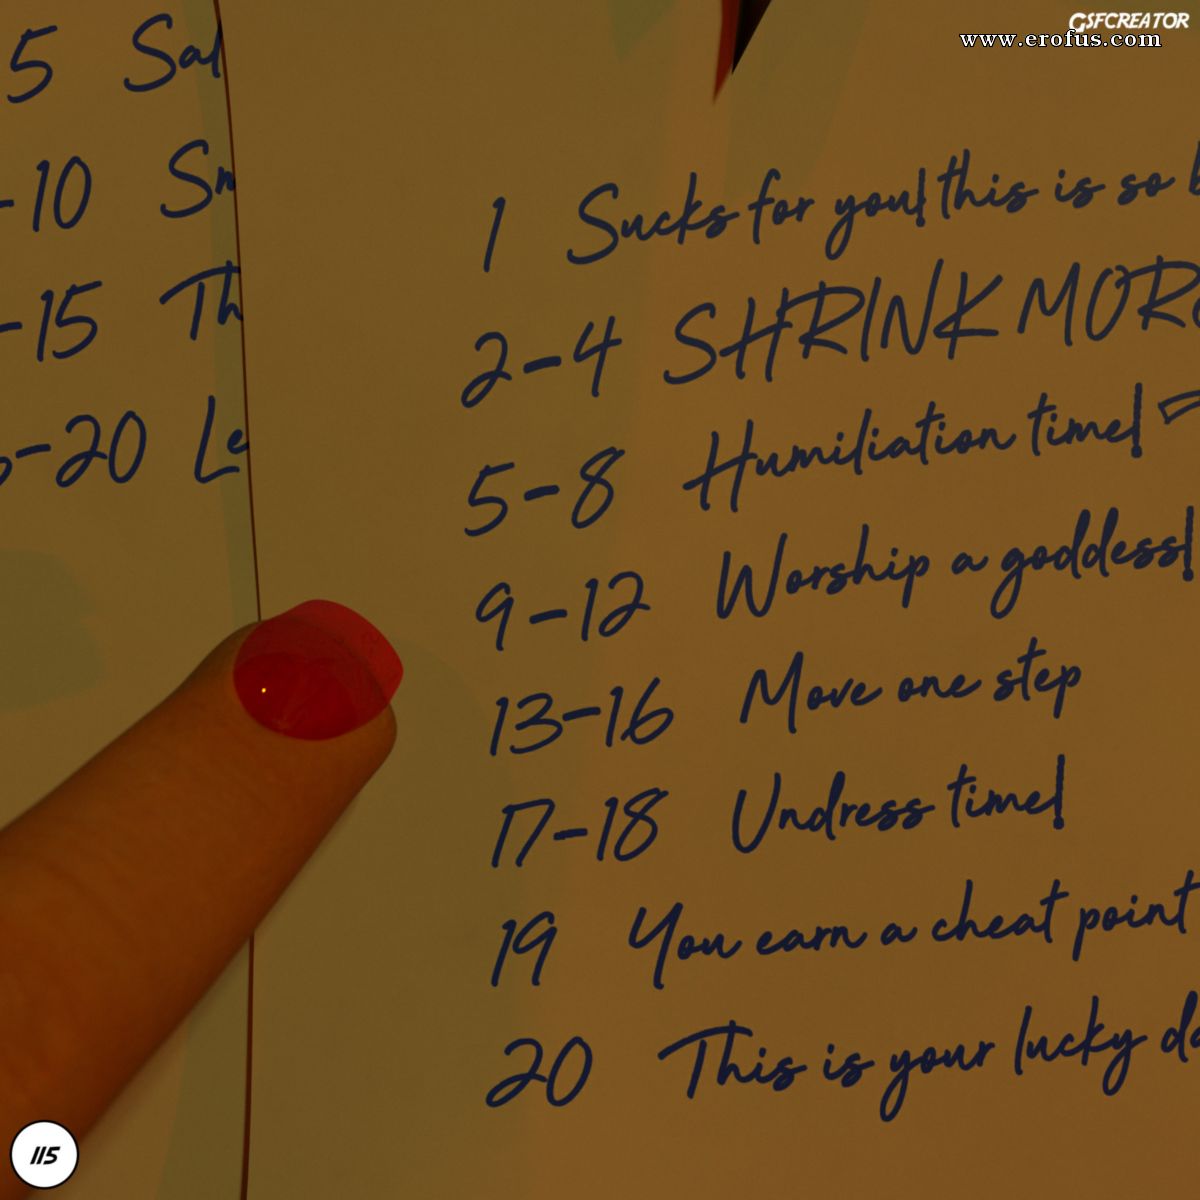 GSFCREATOR
www.erofus.com
5 Sal
-10 Sn
-15 Th
-20 Le
1 Sucks for you! this is so
2-4 SHRINK MORE
5-8 Humiliation time!
9-12 Worship a goddess!
13-16 Move one step
17-18 Undress time!
19 You earn a cheat point
20 This is your lucky da
115